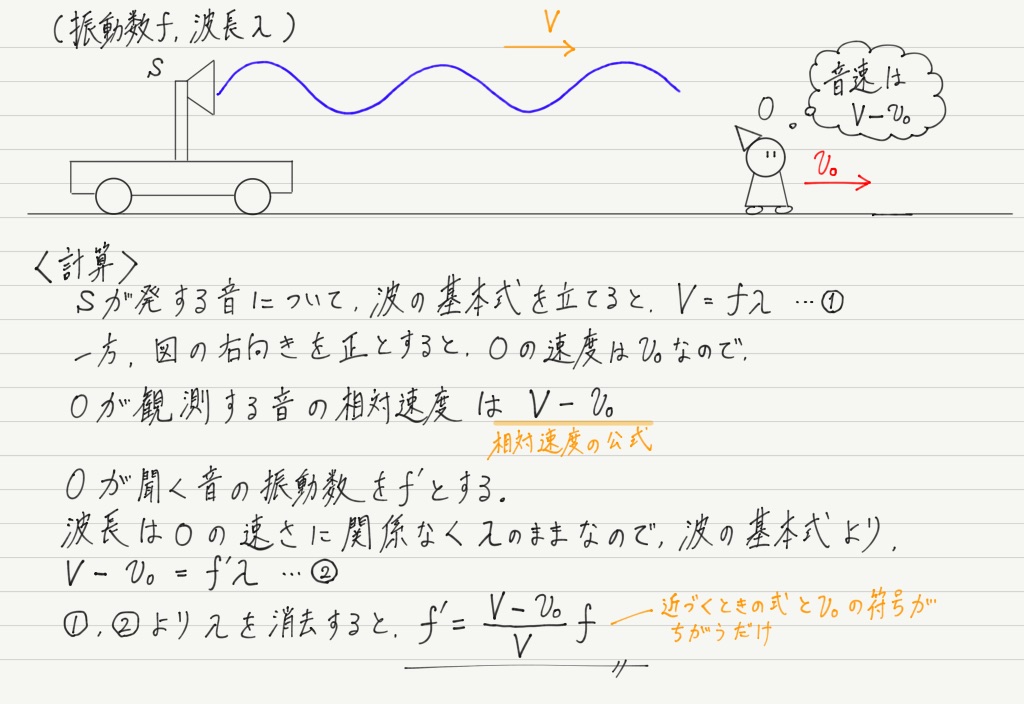 (振動数f, 波長λ)
V
S
音速は
V-v₀
O
v₀
〈計算〉
Sが発する音について, 波の基本式を立てると, V = fλ …①
一方, 図の右向きを正とすると, Oの速度はv₀なので,
Oが観測する音の相対速度は V-v₀
相対速度の公式
Oが聞く音の振動数をf'とする.
波長はOの速さに関係なくλのままなので, 波の基本式より,
V-v₀ = f'λ …②
①, ②よりλを消去すると, f' = \frac{V-v₀}{V} f
近づくときの式とv₀の符号が
ちがうだけ